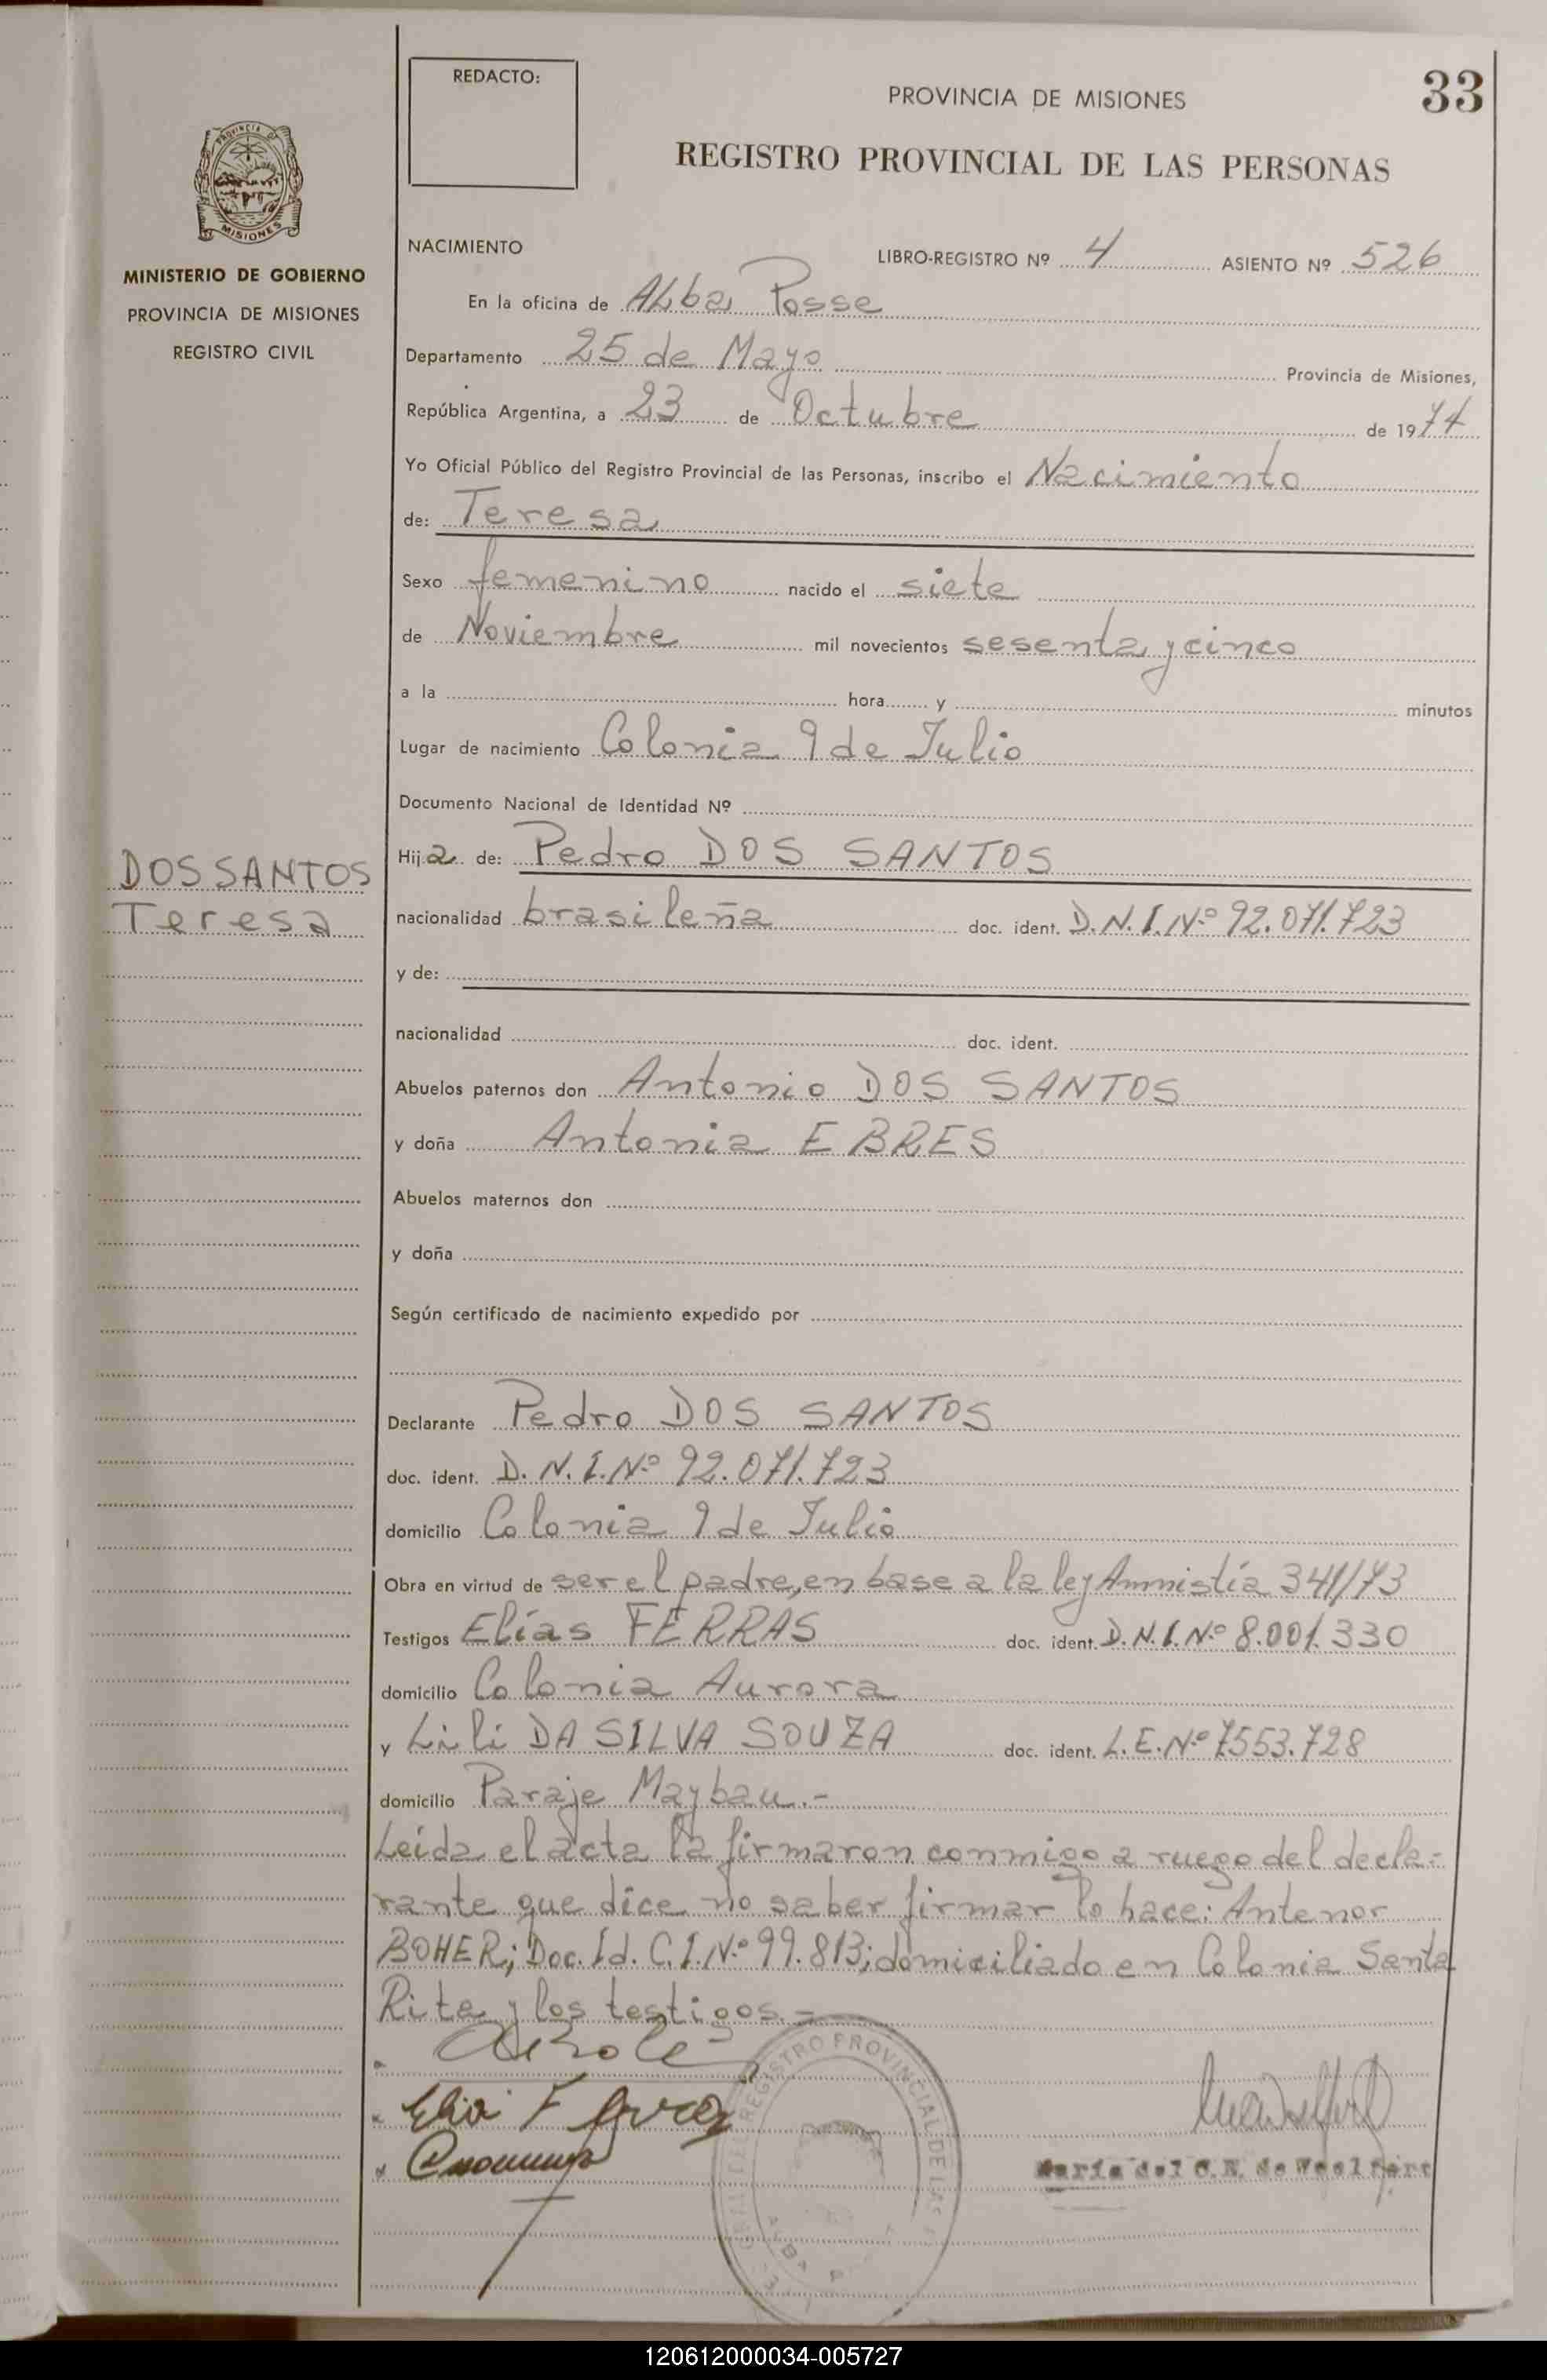 REDACTO:
PROVINCIA DE MISIONES
33
REGISTRO PROVINCIAL DE LAS PERSONAS
PROVINCIA DE
MISIONES
MINISTERIO DE GOBIERNO
PROVINCIA DE MISIONES
REGISTRO CIVIL
NACIMIENTO
LIBRO-REGISTRO Nº 4 ASIENTO Nº 526
En la oficina de Alba Posse
Departamento 25 de Mayo Provincia de Misiones,
República Argentina, a 23 de Octubre de 1974
Yo Oficial Público del Registro Provincial de las Personas, inscribo el Nacimiento
de: Teresa
Sexo femenino nacido el siete
de Noviembre mil novecientos sesenta y cinco
a la hora y minutos
Lugar de nacimiento Colonia 9 de Julio
Documento Nacional de Identidad Nº
DOS SANTOS
Teresa
Hija de: Pedro DOS SANTOS
nacionalidad brasileña doc. ident. D.N.I.Nº 92.071.723
y de:
nacionalidad doc. ident.
Abuelos paternos don Antonio DOS SANTOS
y doña Antonia EBRES
Abuelos maternos don
y doña
Según certificado de nacimiento expedido por
Declarante Pedro DOS SANTOS
doc. ident. D.N.I.Nº 92.071.723
domicilio Colonia 9 de Julio
Obra en virtud de ser el padre, en base a la ley Amnistía 341/73
Testigos Elías FERRAS doc. ident. D.N.I.Nº 8.001.330
domicilio Colonia Aurora
y Lili DA SILVA SOUZA doc. ident. L.E.Nº 7553.728
domicilio Paraje Maybau.-
Leída el acta la firmaron conmigo a ruego del decla-
rante que dice no saber firmar lo hace: Antenor
BOHER; Doc. Id. C.I.Nº 99.813; domiciliado en Colonia Santa
Rita y los testigos.-
REGISTRO PROVINCIAL DE LAS
María del C. N. de
120612000034-005727